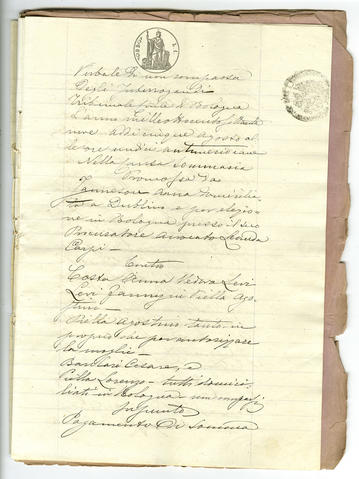 Verbale di non comparsa
degli Interrogandi
Tribunale Civile di Bologna
L'anno mille ottocento
nove addì cinque Agosto al
le ore undici antimeridiane
Nella causa Sommaria
Promossa da
Jameson Anna domicilia
ta a Dublino e per elezio
ne in Bologna presso il suo
Procuratore Avvocato
Carpi –
Contro
Costa Anna Vedova Levi
Levi Fanny in Piella Ago
stino –
Piella Agostino tanto in
proprio che per autorizzare
la moglie –
Cesare, e
Lorenzo – tutti domici
liati in Bologna non comparsi
In punto
Pagamento di Somma